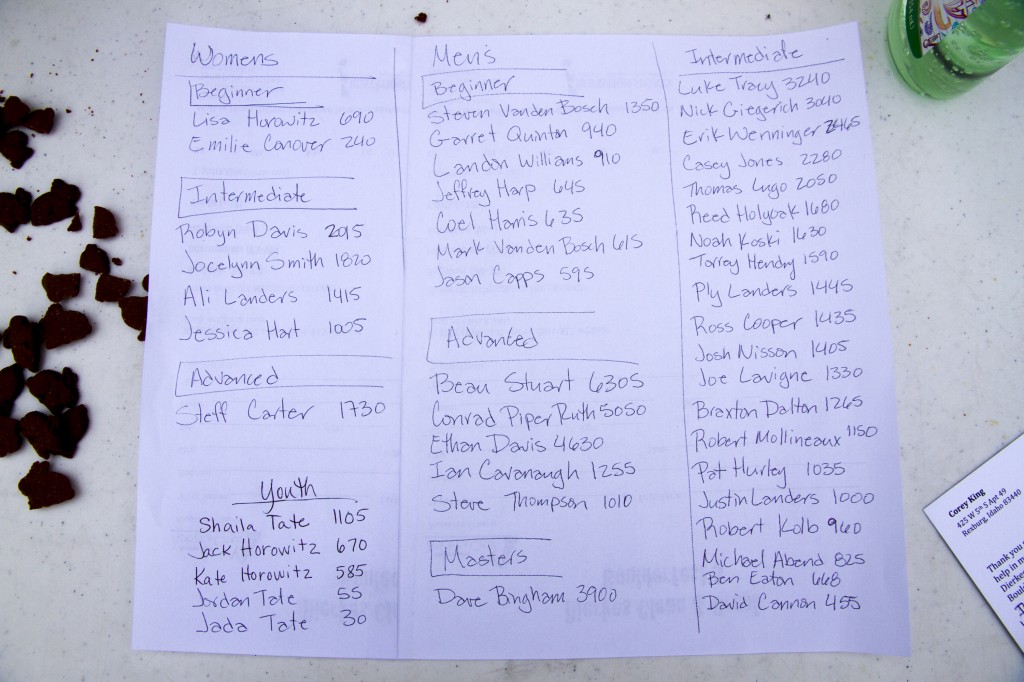 Womens
Beginner
Lisa Horowitz 690
Emilie Conover 240
Intermediate
Robyn Davis 2015
Jocelynn Smith 1820
Ali Landers 1415
Jessica Hart 1005
Advanced
Steff Carter 1730
Youth
Shaila Tate 1105
Jack Horowitz 670
Kate Horowitz 585
Jordan Tate 55
Jada Tate 30
Men's
Beginner
Steven Vanden Bosch 1350
Garret Quinton 940
Landon Willians 910
Jeffrey Harp 645
Coel Harris 635
Mark Vanden Bosch 615
Jason Capps 595
Advanced
Beau Stuart 6305
Conrad Piper Ruth 5050
Ethan Davis 4630
Ian Cavanaugh 1255
Steve Thompson 1010
Masters
Dave Bingham 3900
Intermediate
Luke Tracy 3240
Nick Giegerich 3040
Erik Wenninger 2465
Casey Jones 2280
Thomas Lugo 2050
Reed Holyoak 1680
Noah Koski 1630
Torrey Hendry 1590
Ply Landers 1445
Ross Cooper 1435
Josh Nisson 1405
Joe Lavigne 1330
Braxton Dalton 1265
Robert Mollineaux 1150
Pat Hurley 1035
Justin Landers 1000
Robert Kolb 960
Michael Abend 825
Ben Eaton 668
David Cannon 455
Corey King
425 W 5th S Apt 49
Rexburg, Idaho 83440
Thank you
help in